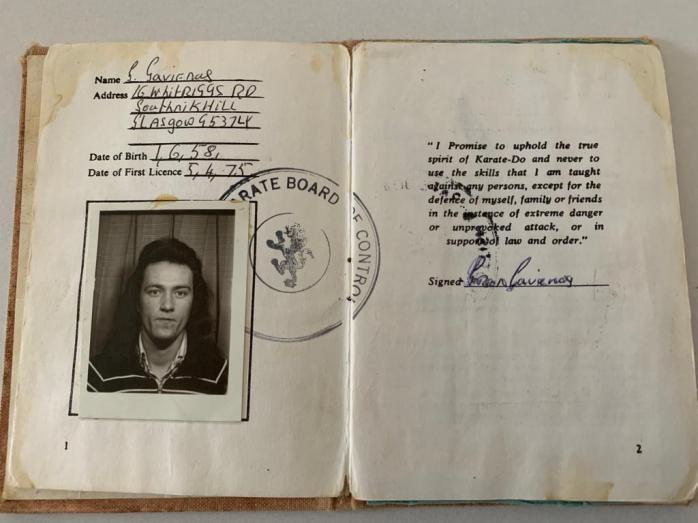 Name S. Gavienas
Address 16 Whitriggs RD
Southnikhill
Glasgow G53 7LY
Date of Birth 1, 6, 58,
Date of First Licence 5, 4, 75
RATE BOARD OF CONTROL
1
"I Promise to uphold the true
spirit of Karate-Do and never to
use the skills that I am taught
against any persons, except for the
defence of myself, family or friends
in the instance of extreme danger
or unprovoked attack, or in
support of law and order."
Signed Gavienas
2